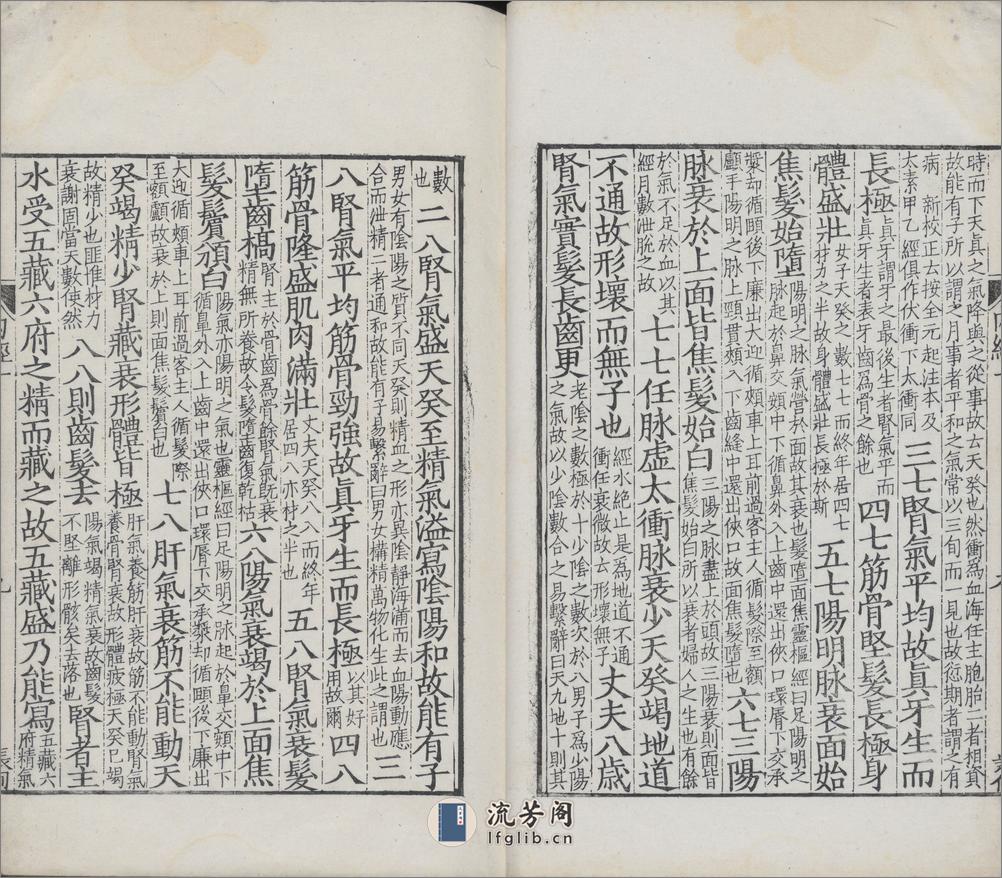 時而下天真之氣降與之從事故云天癸也然衝爲血海任主胞胎二者相資
故能有子所以謂之月事者平和之氣常以三旬而一見也故愆期者謂之有
病 新校正云按全元起注本及
太素甲乙經俱作伏衝下太衝同
三七腎氣平均故眞牙生而
長極
眞牙謂牙之最後生者腎氣平而
眞牙生者表牙齒爲骨之餘也
四七筋骨堅髮長極身
體盛壯
女子天癸之數七七而終年居四七
材力之半故身體盛壯長極於斯
五七陽明脉衰面始
焦髮始墮
陽明之脉氣營於面故其衰也髮墮面焦靈樞經曰足陽明之
脉起於鼻交頞中下循鼻外入上齒中還出俠口環脣下交承
漿却循頤後下廉出大迎循頰車上耳前過客主人循髮際至額
顱手陽明之脉上頸貫頰入下齒縫中還出俠口故面焦髮墮也
六七三陽
脉衰於上面皆焦髮始白
三陽之脉盡上於頭故三陽衰則面皆
焦髮始白所以衰者婦人之生也有餘
於氣不足於血以其
經月數泄脫之故
七七任脉虚太衝脉衰少天癸竭地道
不通故形壞而無子也
經水絶止是爲地道不通
衝任衰微故云形壞無子
丈夫八歳
腎氣實髮長齒更
老陰之數極於十少陰之數次於八男子爲少陽
之氣故以少陰數合之易繫辭曰天九地十則其
數
也
二八腎氣盛天癸至精氣溢寫陰陽和故能有子
男女有陰陽之質不同天癸則精血之形亦異陰靜海滿而去血陽動應
合而泄精二者通和故能有子易繫辭曰男女構精萬物化生此之謂也
三
八腎氣平均筋骨勁強故眞牙生而長極
以其好
用故爾
四八
筋骨隆盛肌肉滿壯
丈夫天癸八八而終年
居四八亦材之半也
五八腎氣衰髮
墮齒槁
腎主於骨齒爲骨餘腎氣旣衰
精無所養故令髮墮齒復乾枯
六八陽氣衰竭於上面焦
髮鬢頒白
陽氣亦陽明之氣也靈樞經曰足陽明之脉起於鼻交頞中下
循鼻外入上齒中還出俠口環脣下交承漿却循頤後下廉出
大迎循頰車上耳前過客主人循髮際
至額顱故衰於上則面焦髮鬢白也
七八肝氣衰筋不能動天
癸竭精少腎藏衰形體皆極
肝氣養筋肝衰故筋不能動腎氣
養骨腎衰故形體疲極天癸已竭
故精少也匪惟材力
衰謝固當天數使然
八八則齒髮去
陽氣竭精氣衰故齒髮
不堅離形骸矣去落也
腎者主
水受五藏六府之精而藏之故五藏盛乃能寫
五藏六
府精氣
流芳阁
lfglib.cn